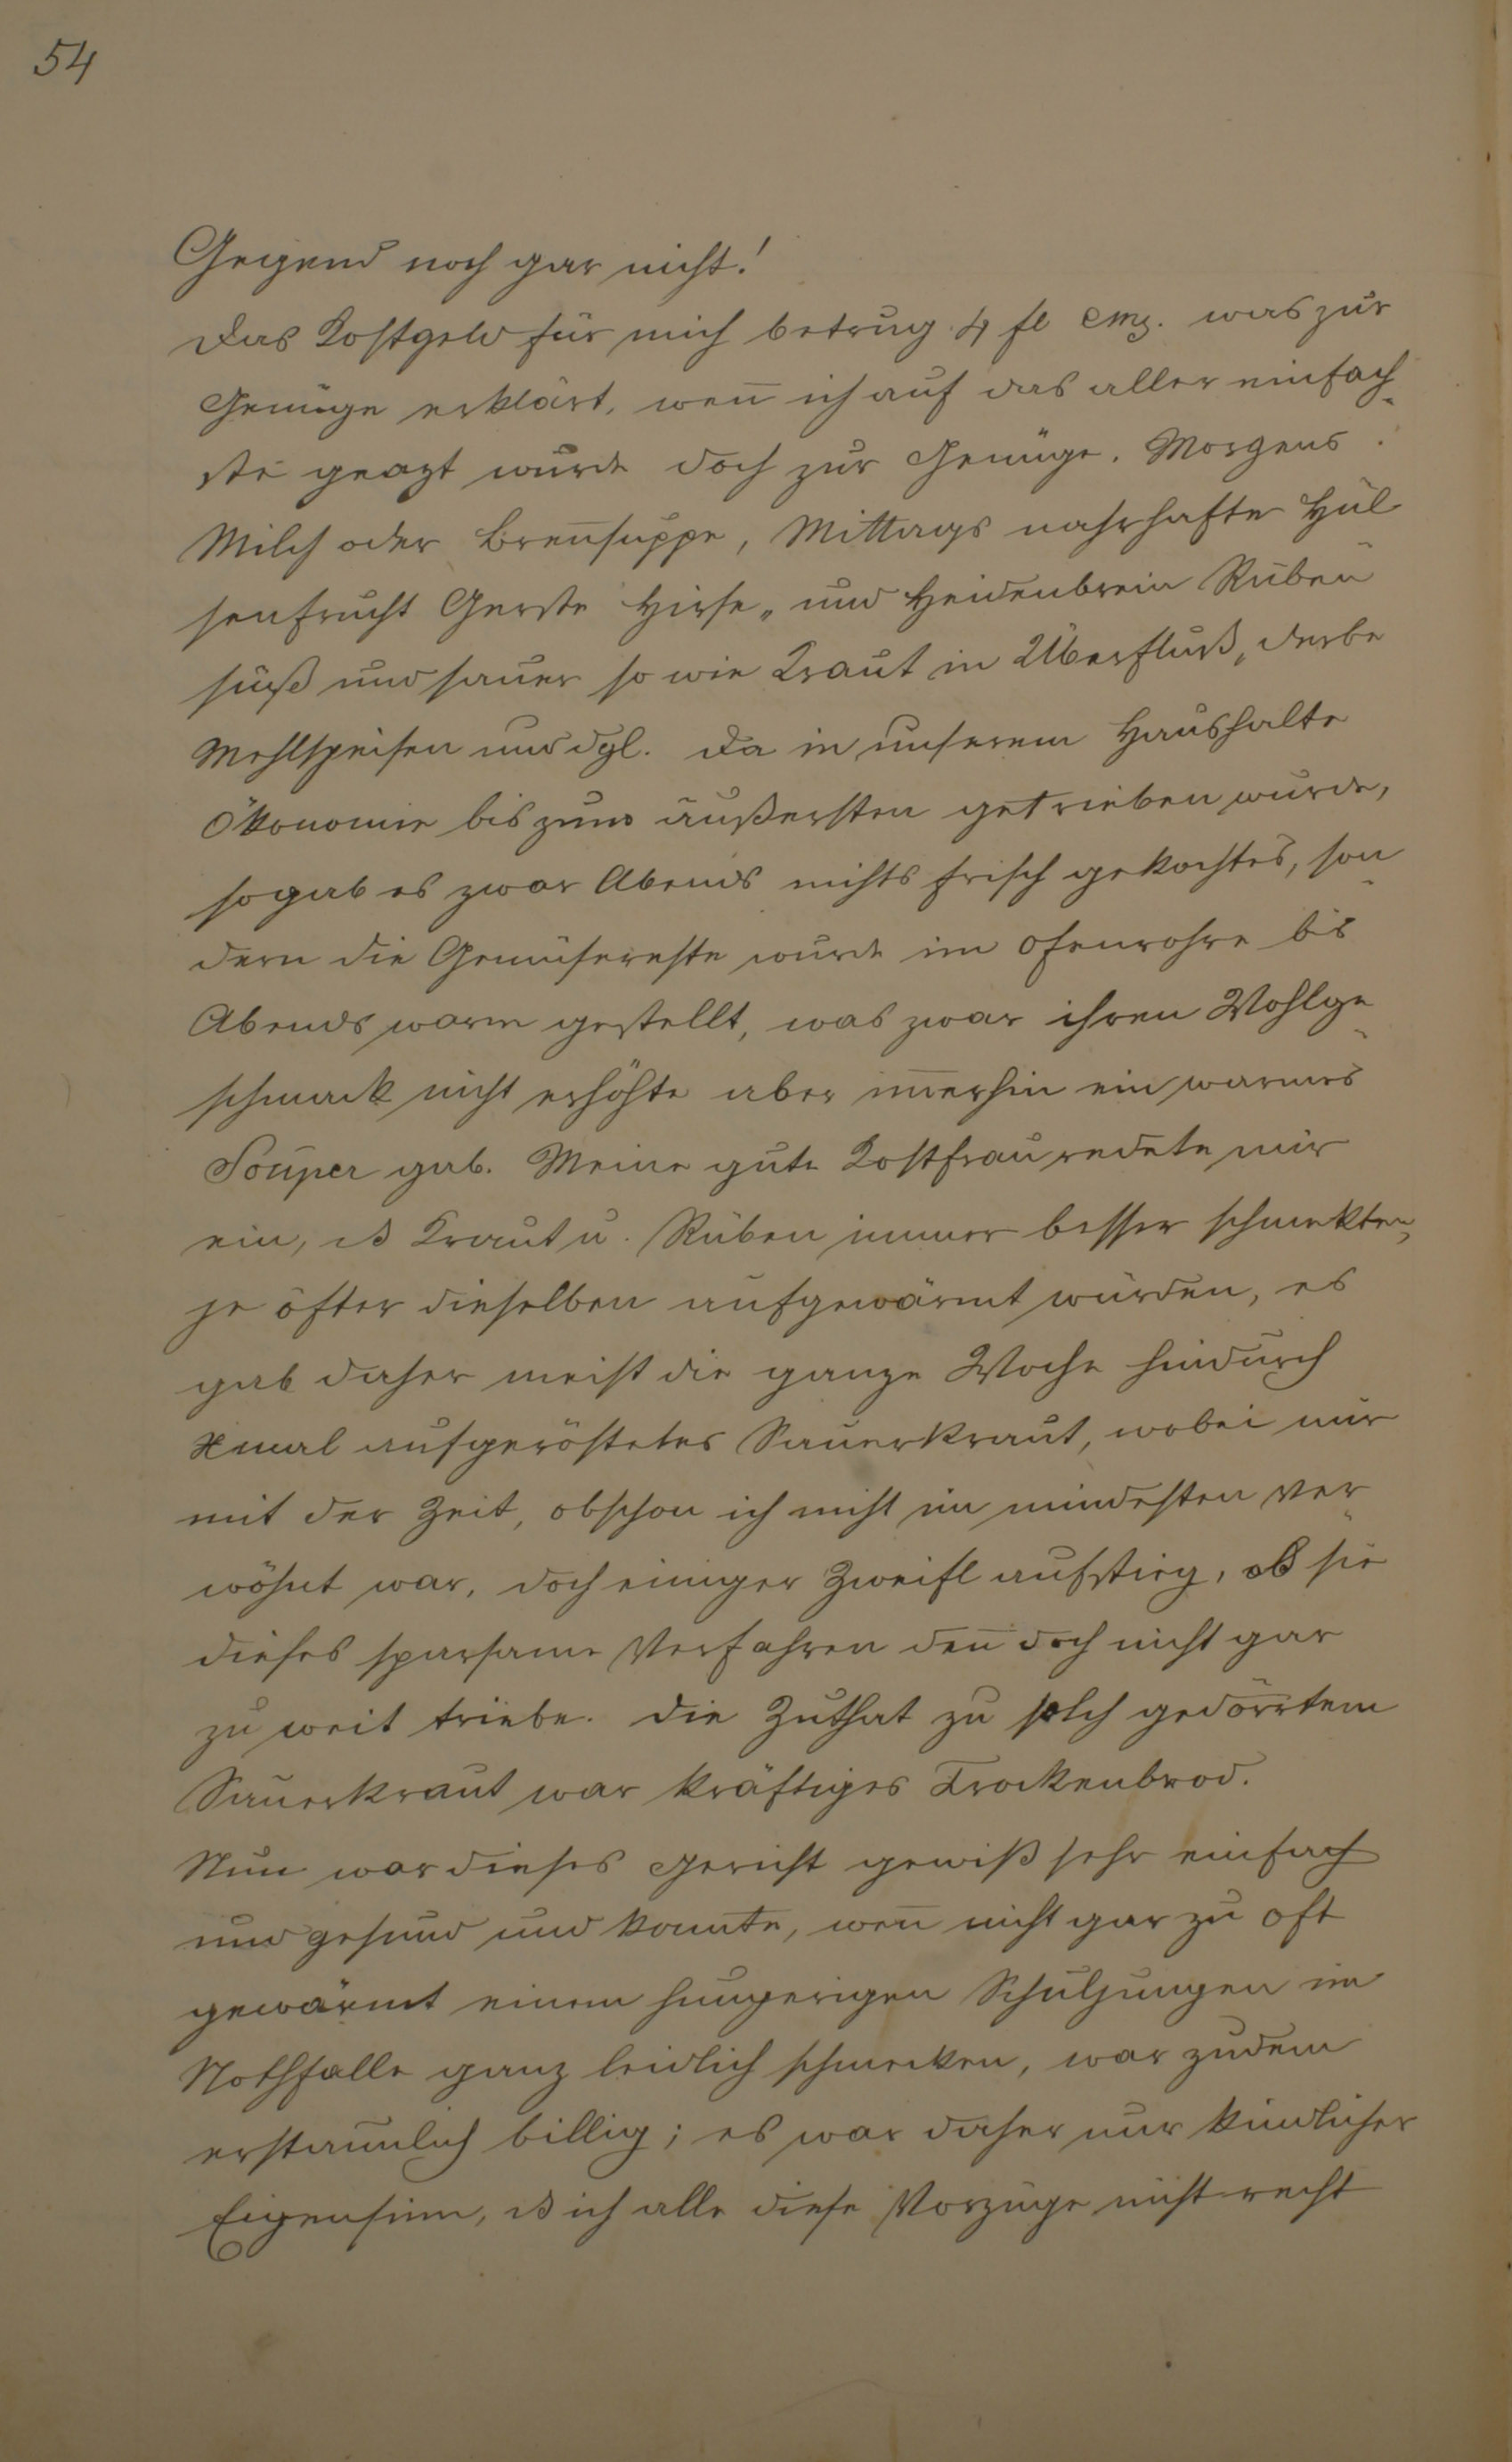 54
Gegend noch gar nicht!
Das Kostgeld für mich betrug 4 fl Cmz. was zur
Genüge erklärt, weñ ich auf das aller einfach-
ste geazt wurde doch zur Genüge. Morgens
Milch oder Breñsuppe, Mittags nahrhafte Hül
senfrucht Gerste Hirse „ und Heidenbrein Rüben
süß und sauer so wie Kraut in Überfluß, derbe
Mehlspeisen und dgl. Da in unserem Haushalte
Ökonomie bis zum äußersten getrieben wurde,
so gab es zwar Abends nichts frisch gekochtes, son
dern die Gemüsereste wurde im Ofenrohre bis
Abends warm gestellt, was zwar ihren Wohlge
schmack nicht erhöhte aber im̅erhin ein warmes
Souper gab. Meine gute Kostfrau redete mir
ein, ß Kraut u. Rüben immer besser schmekten,
je öfter dieselben aufgewärmt würden, es
gab daher meist die ganze Woche hindurch
Xmal aufgeröstetes Sauerkraut, wobei mir
mit der Zeit, obschon ich nicht im mindesten ver
wöhnt war, doch einiger Zweifl aufstieg, ob sie
dieses sparsame Verfahren deñ doch nicht gar
zu weit triebe. Die Zuthat zu solch gedörrtem
Sauerkraut war kräftiges Trockenbrod.
Nun war dieses Gericht gewiß sehr einfach
und gesund und konnte, weñ nicht gar zu oft
gewärmt einem hungerigen Schuljungen im
Nothfalle ganz leidlich schmecken, war zudem
erstaunlich billig; es war daher nur kindlicher
Eigensinn, ß ich alle diese Vorzüge nicht recht